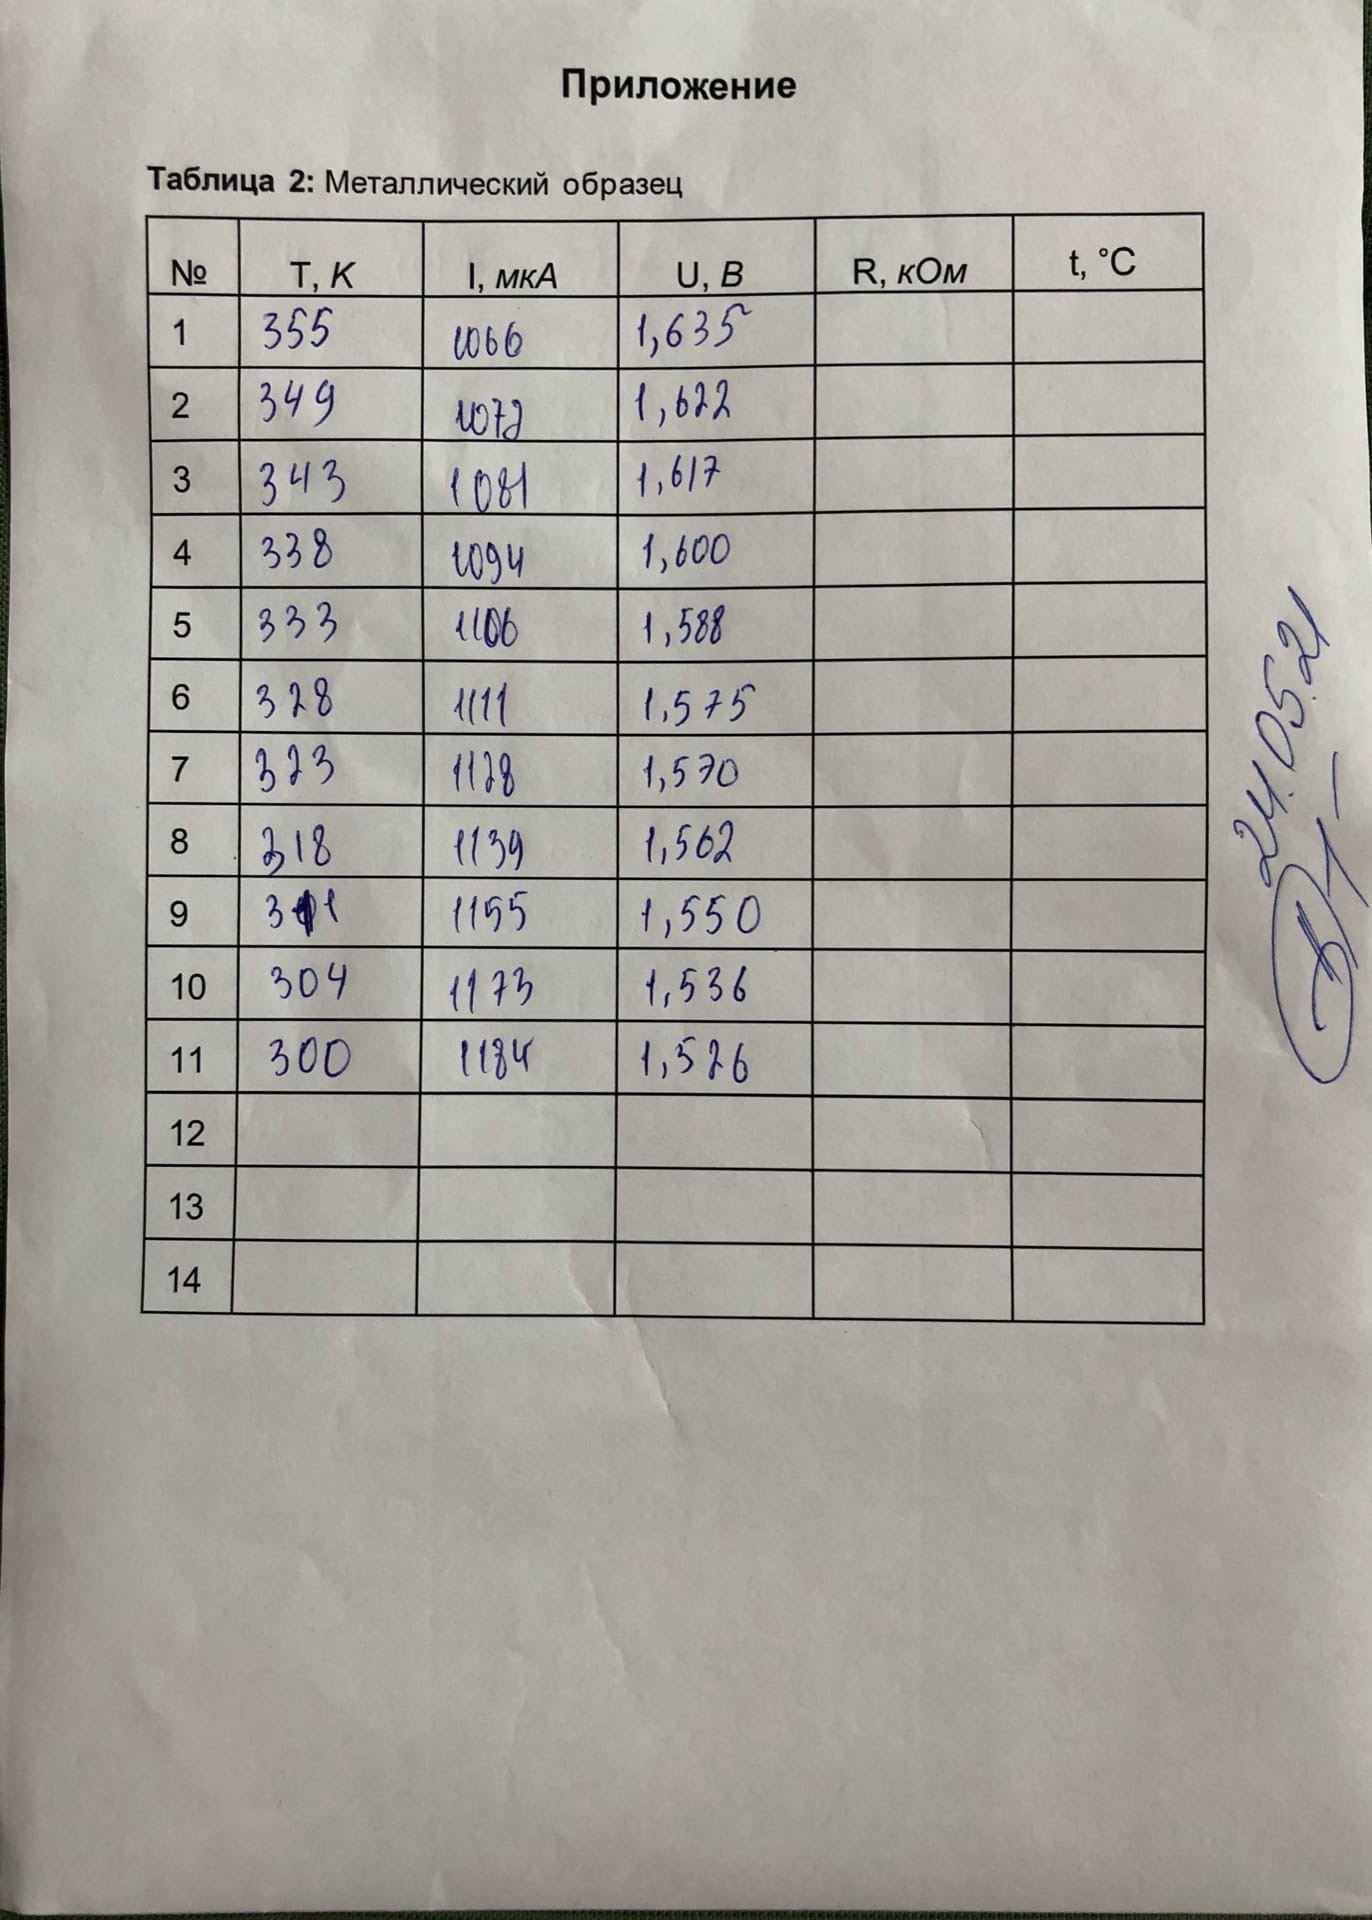 Приложение
Таблица 2: Металлический образец
№ T, K I, мкА U, В R, кОм t, °C
1 355 1066 1,635
2 349 1072 1,622
3 343 1081 1,617
4 338 1094 1,600
5 333 1106 1,588
6 328 1111 1,575
7 323 1128 1,570
8 318 1139 1,562
9 311 1155 1,550
10 304 1173 1,536
11 300 1184 1,526
12
13
14
24.05.21